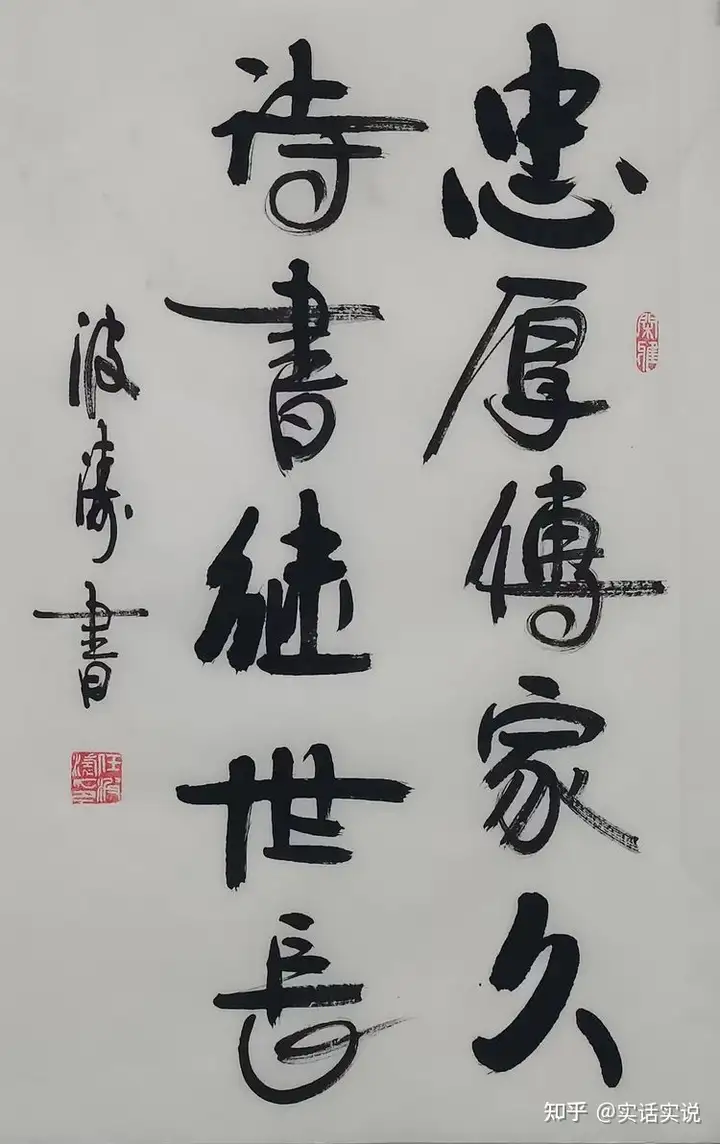 忠厚傳家久
詩書継世長
波濤書
知乎 @实话实说